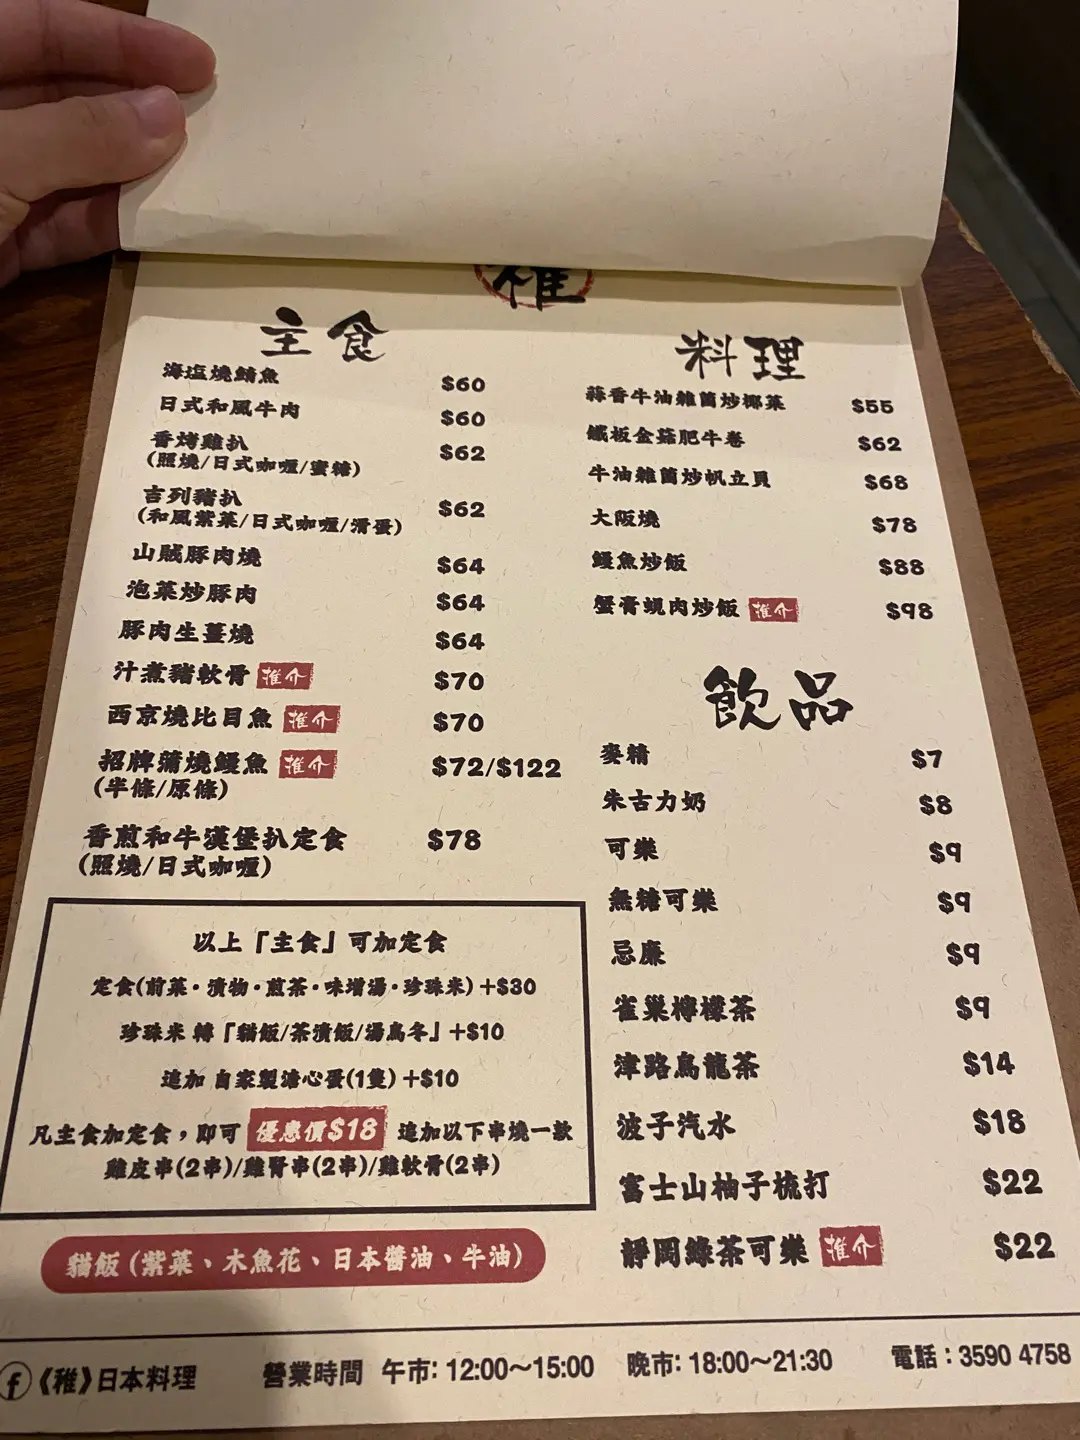 稚
主食
海塩燒鯖魚 $60
日式和風牛肉 $60
香烤雞扒 $62
(照燒/日式咖喱/蜜糖)
吉列豬扒 $62
(和風紫菜/日式咖喱/滑蛋)
山賊豚肉燒 $64
泡菜炒豚肉 $64
豚肉生薑燒 $64
汁煮豬軟骨 推介 $70
西京燒比目魚 推介 $70
招牌蒲燒鰻魚 推介 $72/$122
(半條/原條)
香煎和牛漢堡扒定食 $78
(照燒/日式咖喱)
以上「主食」可加定食
定食(前菜·漬物·煎茶·味增湯·珍珠米)+$30
珍珠米 轉「貓飯/茶漬飯/湯烏冬」+$10
追加 自家製溏心蛋(1隻)+$10
凡主食加定食，即可 優惠價$18 追加以下串燒一款
雞皮串(2串)/雞腎串(2串)/雞軟骨(2串)
貓飯 (紫菜、木魚花、日本醬油、牛油)
料理
蒜香牛油雜菌炒椰菜 $55
鐵板金菇肥牛卷 $62
牛油雜菌炒帆立貝 $68
大阪燒 $78
鰻魚炒飯 $88
蟹膏蜆肉炒飯 推介 $98
飲品
麥精 $7
朱古力奶 $8
可樂 $9
無糖可樂 $9
忌廉 $9
雀巢檸檬茶 $9
津路烏龍茶 $14
波子汽水 $18
富士山柚子梳打 $22
靜岡綠茶可樂 推介 $22
f 《稚》日本料理 營業時間 午市: 12:00～15:00 晚市: 18:00～21:30 電話：3590 4758